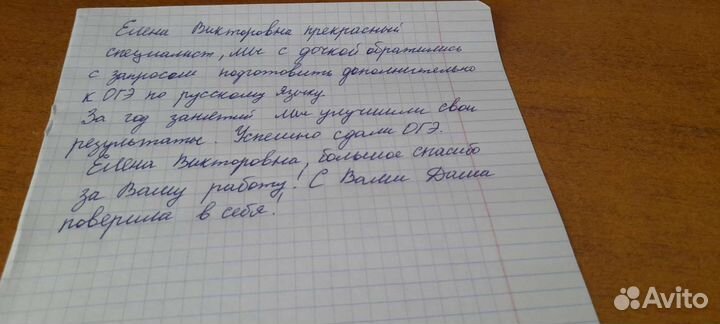 Елена Викторовна прекрасный
специалист, мы с дочкой обратились
с запросом подготовить дополнительно
к ОГЭ по русскому языку
За год занятий мы улучшили свои
результаты. Успешно сдали ОГЭ.
Елена Викторовна, большое спасибо
за Вашу работу! С Вами Даша
поверила в себя!
Avito